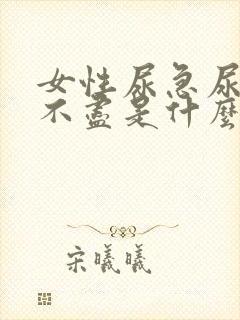 女性尿急尿
不盡是什麼
宋曦曦